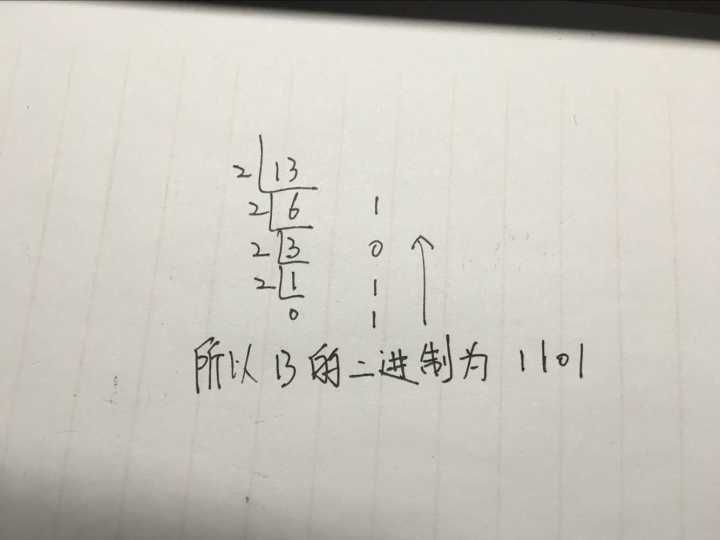 2 13
2 6 1
2 3 0
2 1 1
0 1
所以13的二进制为 1101